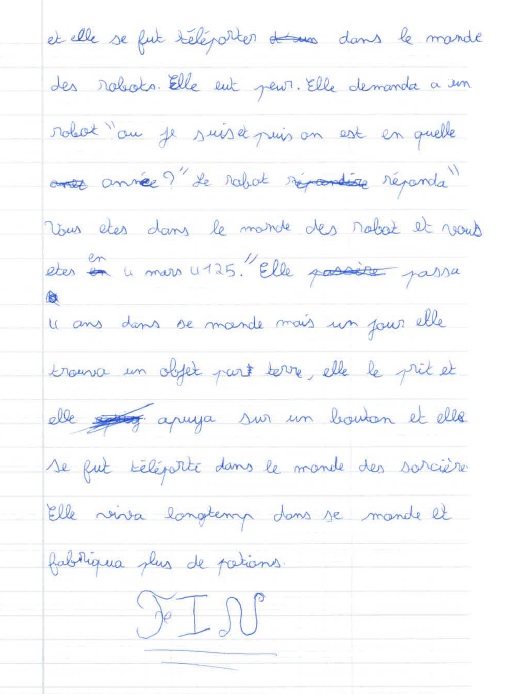 et elle se fut téléporter dans le monde
des robots. Elle eut peur. Elle demanda a un
robot "ou je suis et puis on est en quelle
année ?" Le robot réponda "
Vous etes dans le monde des robot et vous
etes en 4 mars 4125." Elle passa
4 ans dans se monde mais un jour elle
trouva un objet part terre, elle le prit et
elle apuya sur un bouton et elle
se fut téléporté dans le monde des sorcière.
Elle viva longtemp dans se monde et
fabriqua plus de potions.
FIN